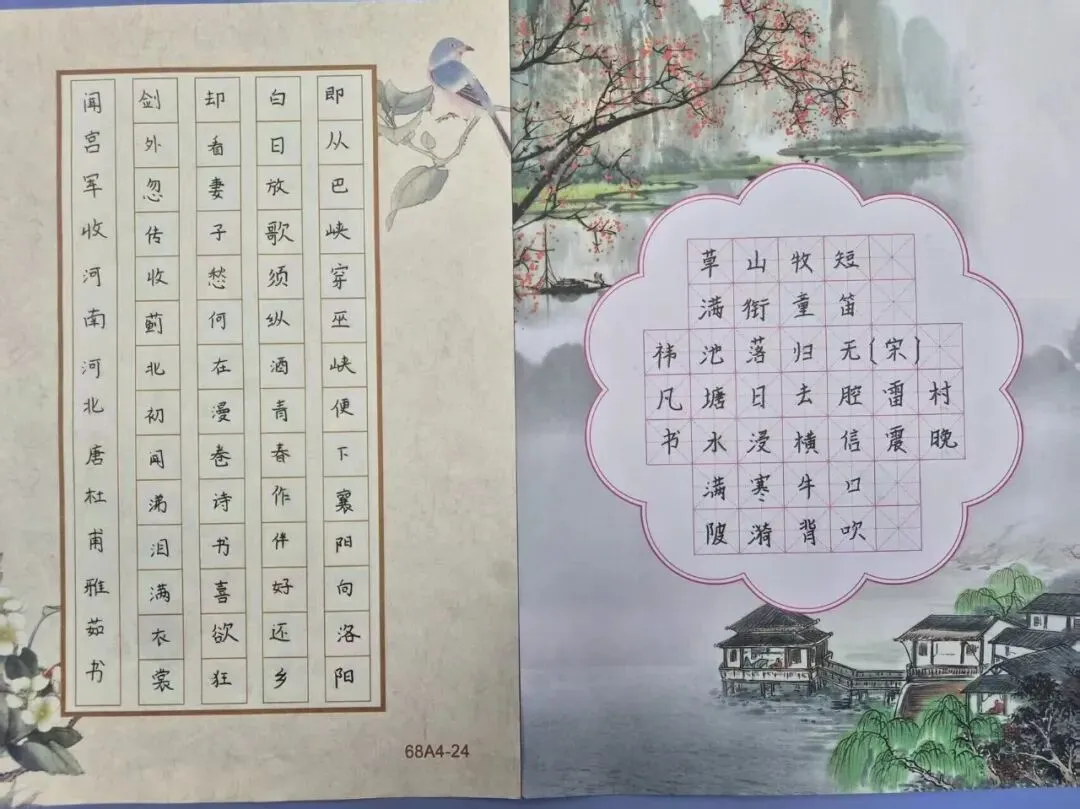 闻宫军收河南河北唐杜甫雅茹书
剑外忽传收蓟北初闻涕泪满衣裳
却看妻子愁何在漫卷诗书喜欲狂
白日放歌须纵酒青春作伴好还乡
即从巴峡穿巫峡便下襄阳向洛阳
68A4-24
村晚
(宋)雷震
草满池塘水满陂
山衔落日浸寒漪
牧童归去横牛背
短笛无腔信口吹
祎凡书